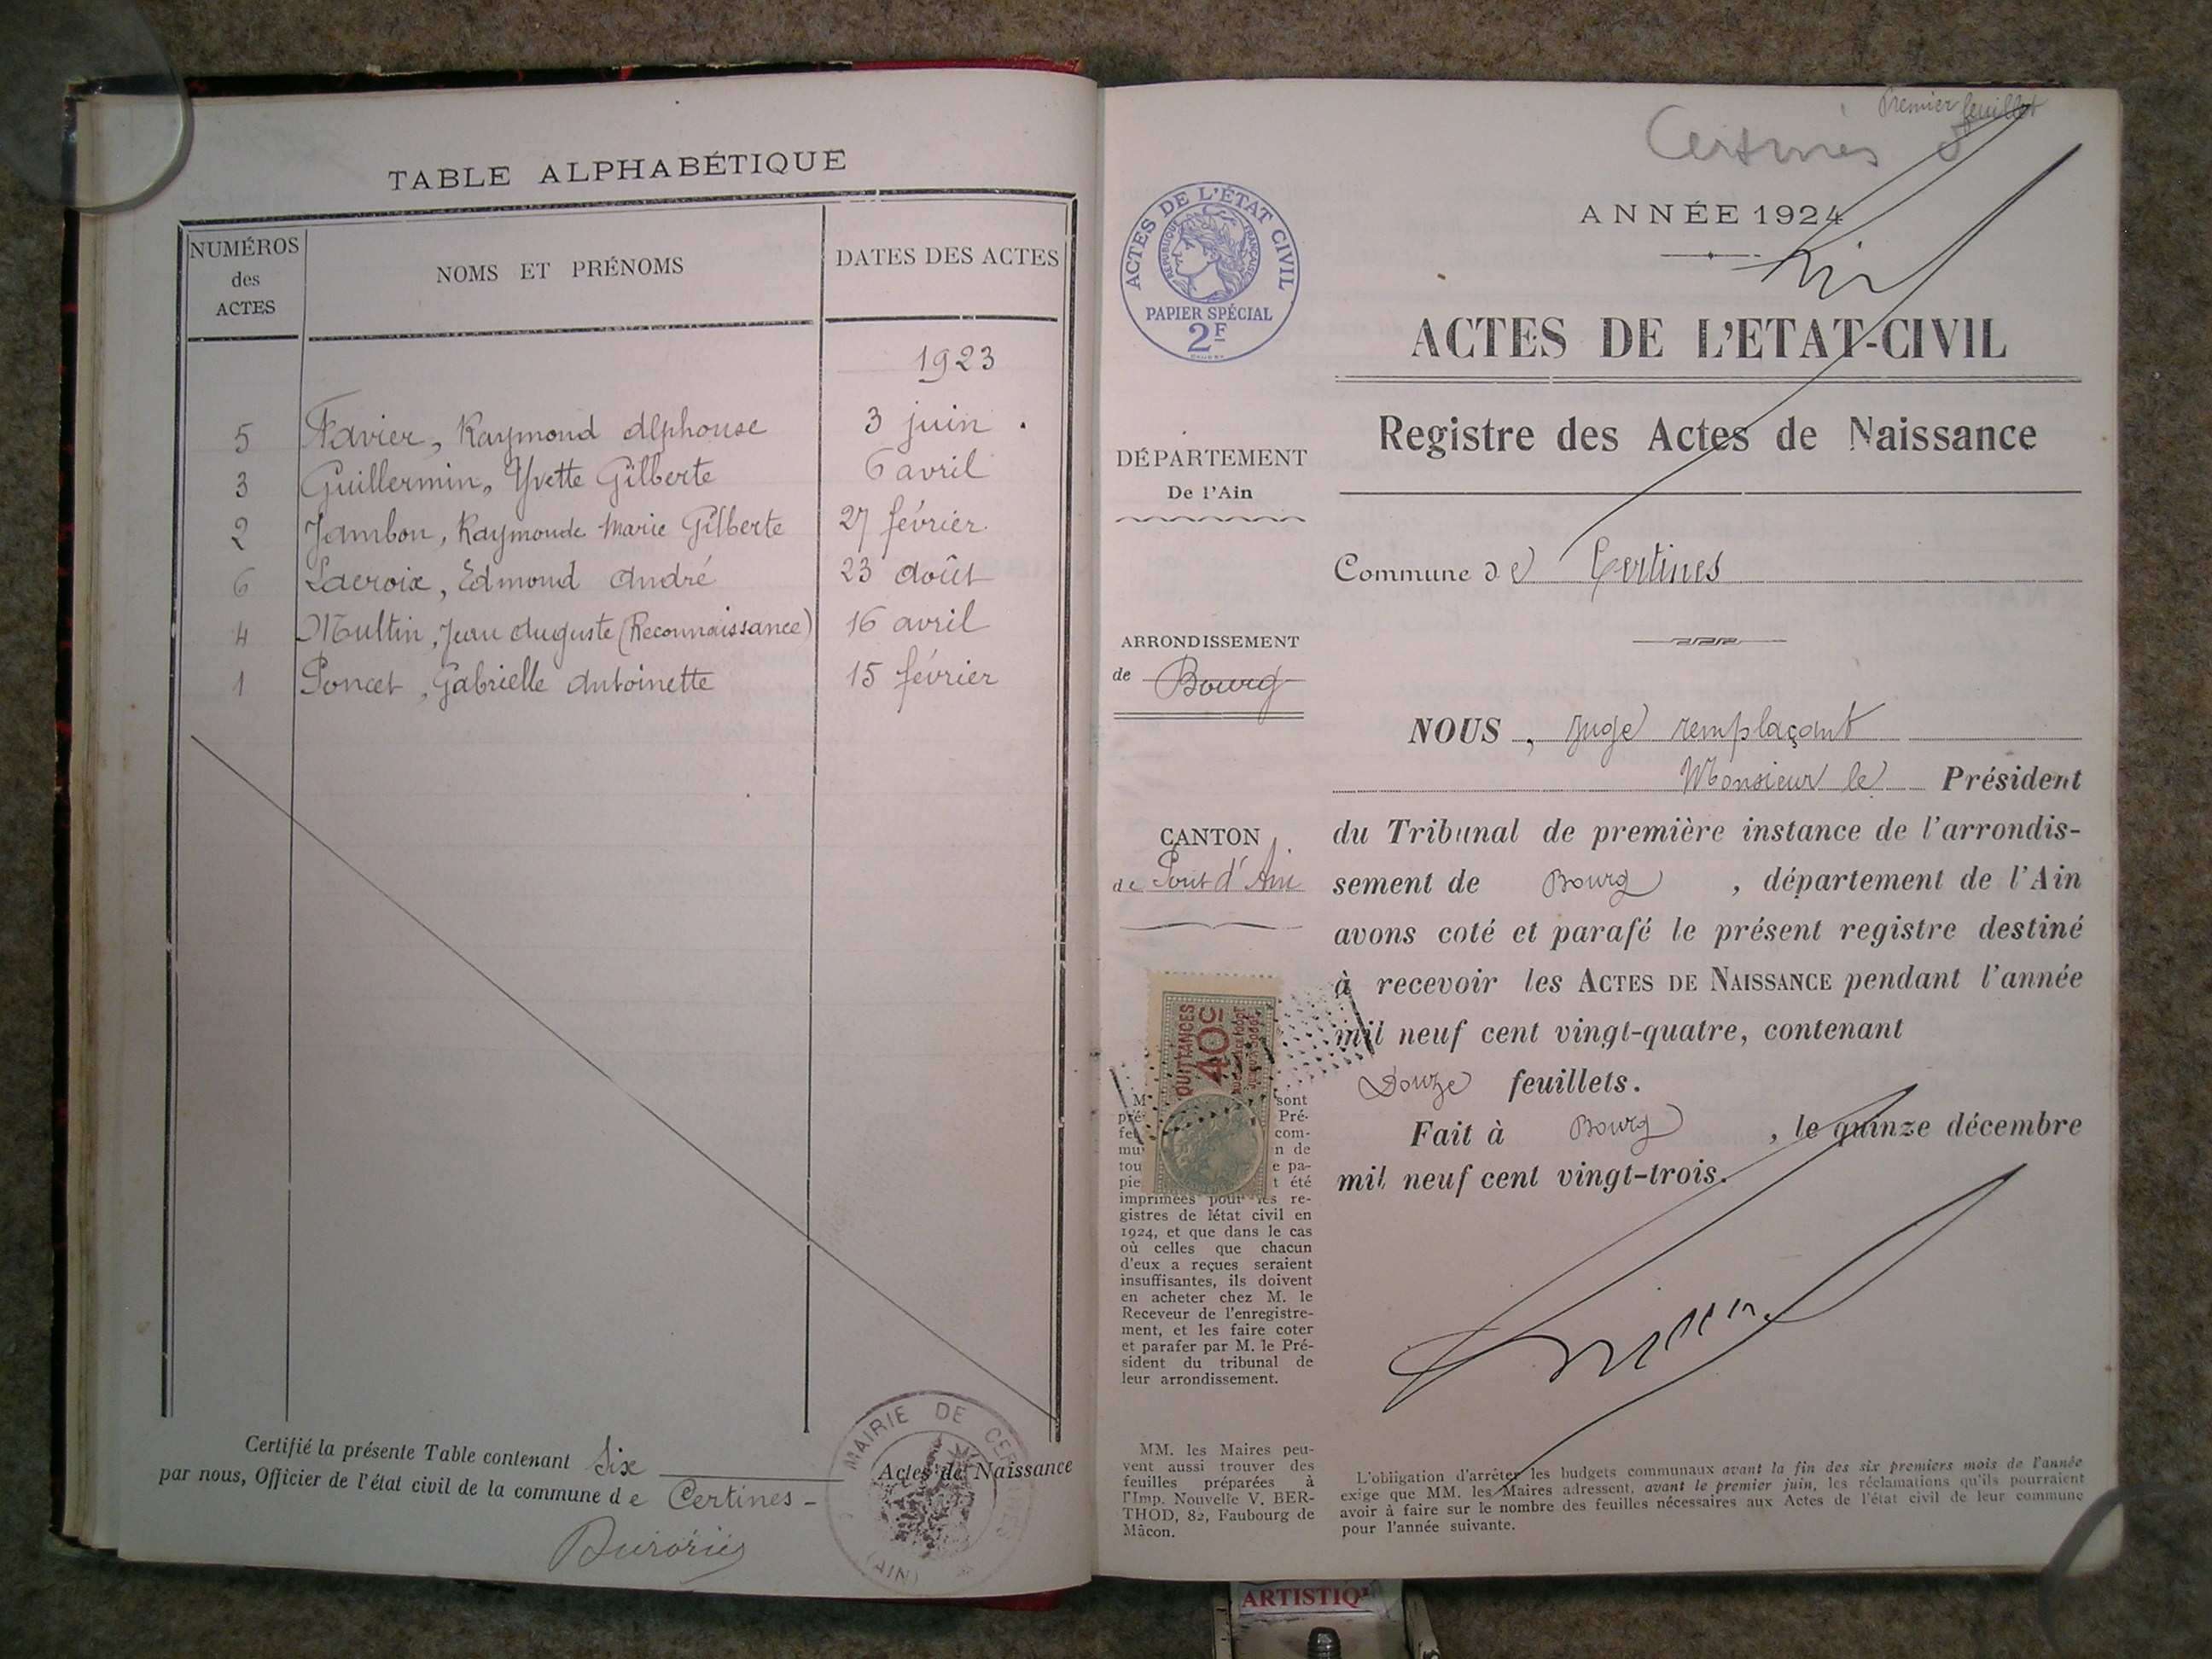 TABLE ALPHABÉTIQUE
NUMÉROS
des
ACTES
NOMS ET PRÉNOMS
DATES DES ACTES
1923
5 Favier, Raymond Alphonse 3 juin
3 Guillermin, Yvette Gilberte 6 avril
2 Jambon, Raymonde Marie Gilberte 27 février
6 Lacroix, Edmond André 23 août
4 Multin, Jean Auguste (Reconnaissance) 16 avril
1 Poncet, Gabrielle Antoinette 15 février
Certifié la présente Table contenant Six Actes de Naissance
par nous, Officier de l'état civil de la commune de Certines
MAIRIE DE CERTINES
(AIN)
Premier feuillet
Certines
ACTES DE L'ÉTAT CIVIL
RÉPUBLIQUE FRANÇAISE
PAPIER SPÉCIAL
2F
ANNÉE 1924
ACTES DE L'ETAT-CIVIL
Registre des Actes de Naissance
DÉPARTEMENT
De l'Ain
Commune de Certines
ARRONDISSEMENT
de Bourg
CANTON
de Pont d'Ain
NOUS, Juge remplaçant
Monsieur le Président
du Tribunal de première instance de l'arrondis-
sement de Bourg, département de l'Ain
avons coté et parafé le présent registre destiné
à recevoir les ACTES DE NAISSANCE pendant l'année
mil neuf cent vingt-quatre, contenant
Douze feuillets.
Fait à Bourg, le quinze décembre
mil neuf cent vingt-trois.
QUITTANCES
40c
sont
Pré-
com-
n de
e pa-
t été
imprimées pour les re-
gistres de l'état civil en
1924, et que dans le cas
où celles que chacun
d'eux a reçues seraient
insuffisantes, ils doivent
en acheter chez M. le
Receveur de l'enregistre-
ment, et les faire coter
et parafer par M. le Pré-
sident du tribunal de
leur arrondissement.
MM. les Maires peu-
vent aussi trouver des
feuilles préparées à
l'Imp. Nouvelle V. BER-
THOD, 82, Faubourg de
Mâcon.
L'obligation d'arrêter les budgets communaux avant la fin des six premiers mois de l'année
exige que MM. les Maires adressent, avant le premier juin, les réclamations qu'ils pourraient
avoir à faire sur le nombre des feuilles nécessaires aux Actes de l'état civil de leur commune
pour l'année suivante.
ARTISTIQ